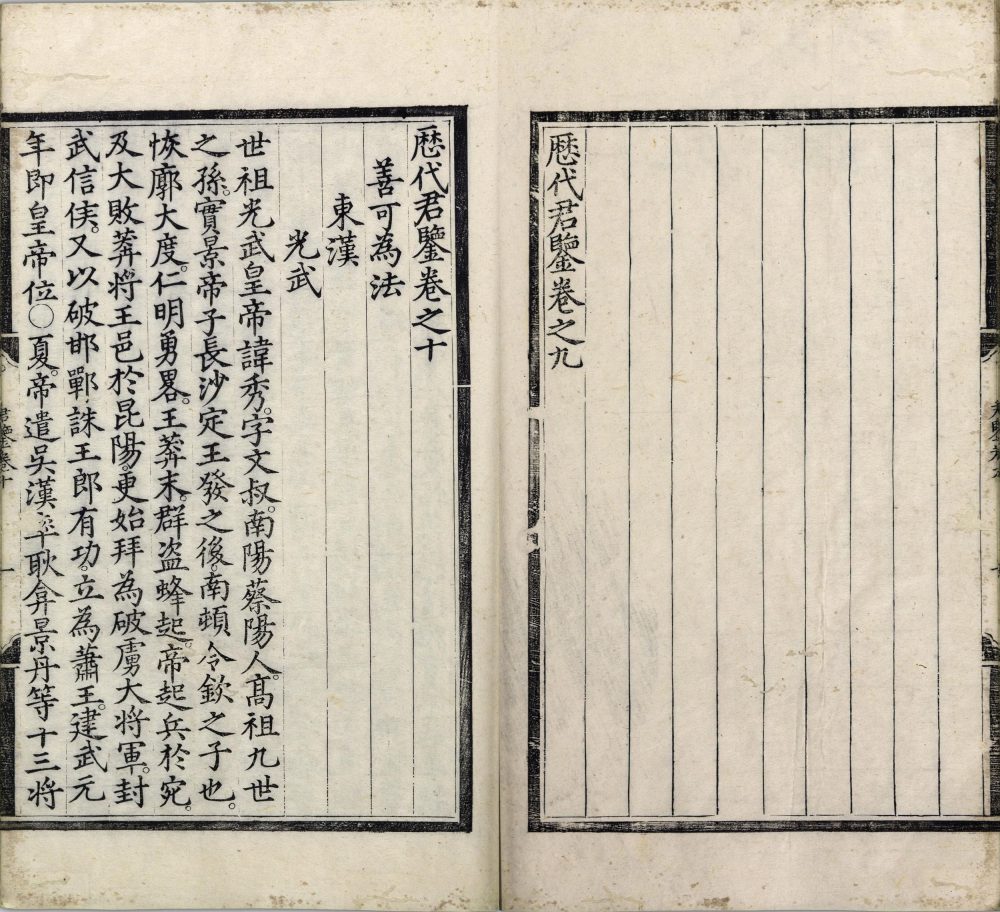 歷代君鑒卷之九
歷代君鑒卷之十
善可為法
東漢
光武
世祖光武皇帝諱秀。字文叔。南陽蔡陽人。高祖九世
之孫。實景帝子長沙定王發之後。南頓令欽之子也。
恢廓大度。仁明勇畧。王莽末。群盗蜂起。帝起兵於宛。
及大敗莽將王邑於昆陽。更始拜為破虜大將軍。封
武信侯。又以破邯鄲誅王郎有功。立為蕭王。建武元
年即皇帝位○夏。帝遣吳漢率耿弇景丹等十三將
君鑒卷十
一